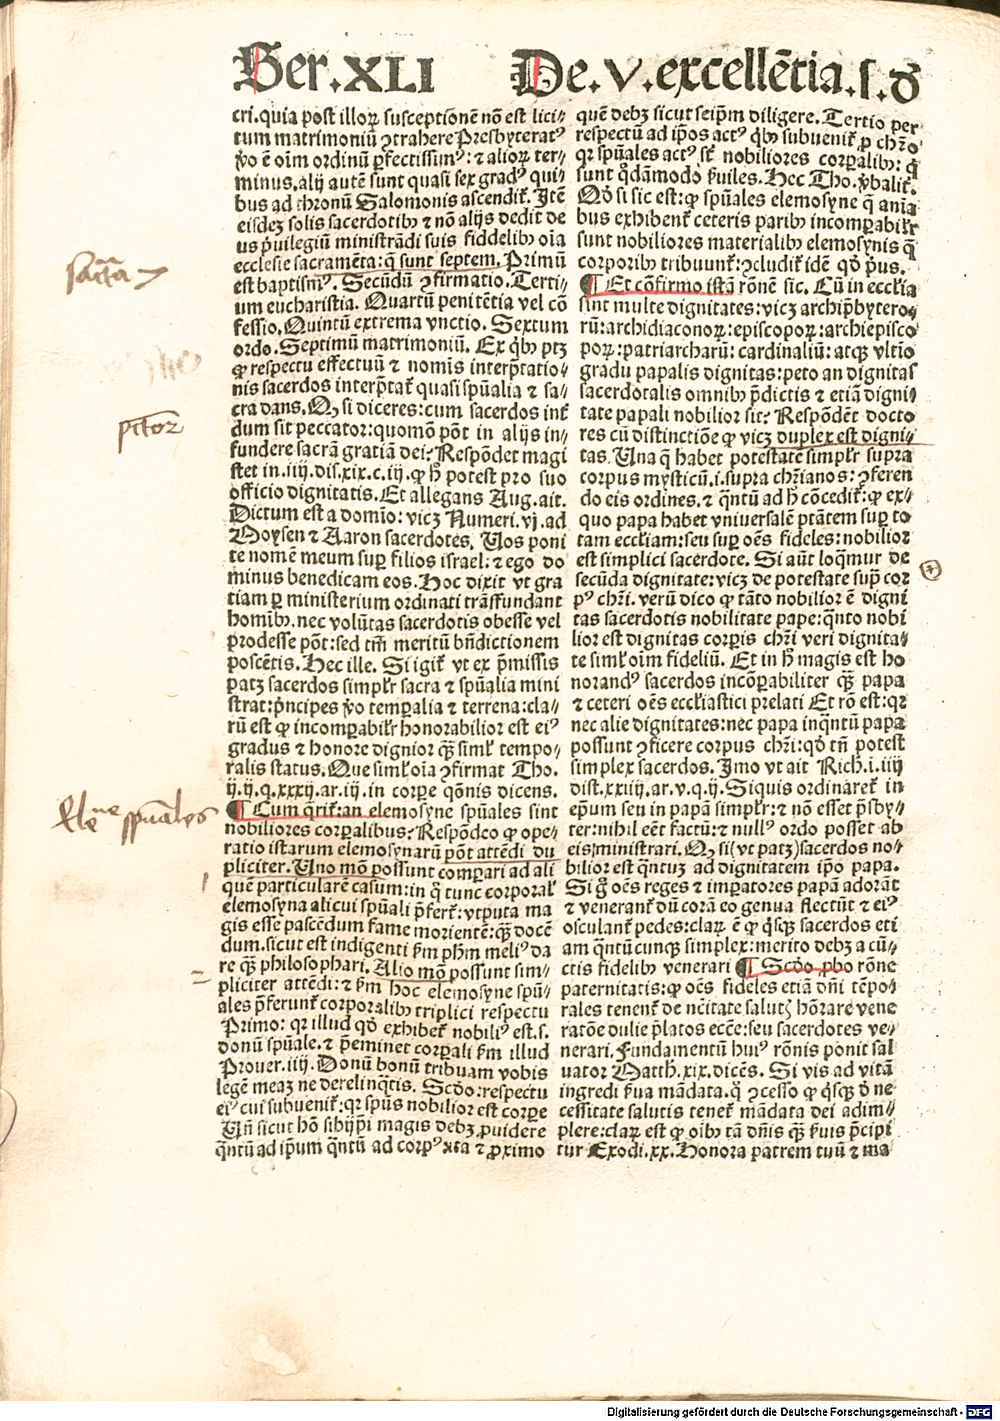 Ser.XLI De.V.excellētia.s.đ
cri.quia post illoꝝ susceptionē nō est lici⸗
tum matrimoniū ꝯtrahere Presbyteratꝰ
ꝟo ē oīm ordinū ꝑfectissimꝰ: ⁊ alioꝝ ter⸗
minus.alij autē sunt quasi sex gradꝰ qui⸗
bus ad thronū Salomonis ascendit̄. Itē
eisdeꝫ solis sacerdotibꝰ ⁊ nō alijs dedit de
us p̄uilegiū ministrādi suis fiddelibꝰ oīa
ecclesie sacramēta: q̄ sunt septem. Primū
est baptismꝰ. Secūdū ꝯfirmatio. Terti⸗
um eucharistia. Quartū penitētia vel cō
fessio. Quintū extrema vnctio. Sextum
ordo. Septimū matrimoniū. Ex qͥbꝰ ptꝫ
ꝙ respectu effectuū ⁊ nomīs interp̄tatio⸗
nis sacerdos interp̄tat̄ quasi spūalia ⁊ sa⸗
cra dans. Qꝫ si diceres: cum sacerdos int̄
dum sit peccator: quomō pōt in alijs in⸗
fundere sacrā gratiā dei? Respōdet magi
ster in.iiij.dis.xix.c.iij. ꝙ hͦ potest pro suo
officio dignitatis. Et allegans Aug.ait.
Dictum est a domīo: vicꝫ Numeri.vj.ad
Moysen ⁊ Aaron sacerdotes. Vos poni
te nomē meum suꝑ filios israel: ⁊ ego do
minus benedicam eos. Hoc dixit vt gra
tiam ꝑ ministerium ordinati trāsfundant
homībꝰ. nec volūtas sacerdotis obesse vel
prodesse pōt: sed tm̄ meritū bn̄dictionem
poscētis. Hec ille. Si igit̄ vt ex p̄missis
patꝫ sacerdos simpl̄r sacra ⁊ spūalia mini
strat: p̄ncipes ꝟo temꝑalia ⁊ terrena: cla⸗
rū est ꝙ incomꝑabil̄r honorabilior est eiꝰ
gradus ⁊ honore dignior qͣꝫ simlꝉ tempo⸗
ralis status. Que simlꝉ oīa ꝯfirmat Tho.
ij.ij.q.xxxij.ar.iij. in corpe q̄onis dicens.
¶ Cum q̄rit̄: an elemosyne spūales sint
nobiliores corꝑalibus? Respōdeo ꝙ ope⸗
ratio istarum elemosynarū pōt attēdi du
pliciter. Vno mō possunt comꝑari ad ali
quē particularē casum: in q̄ tunc corporalꝭ
elemosyna alicui spūali p̄fert̄: vtputa ma
gis esset pascēdum fame morientē: qͣꝫ docē
dum. sicut est indigenti ẜm ph̄m meliꝰ da
re qͣꝫ philosophari. Alio mō possunt sim⸗
pliciter attēdi: ⁊ ẜm hoc elemosyne spū⸗
ales p̄ferunt̄ corporalibꝰ triplici respectu
Primo: qꝛ illud qđ exhibet̄ nobiliꝰ est. s.
donū spūale. ⁊ p̄eminet corꝑali ẜm illud
Prouer.iiij. Donū bonū tribuam vobis
legē meaꝫ ne derelinqͣtis. Scđo: respectu
eiꝰ cui subuenit̄: qꝛ spūs nobilior est corpe
Vn̄ sicut hō sibijp̄i magis debꝫ ꝓuidere
qͣntū ad ip̄um qͣntū ad corpꝰ ita ⁊ ꝓximo
quē debꝫ sicut seip̄m diligere. Tertio per
respectū ad ip̄os actꝰ qͥbꝰ subuenit̄ ꝓ chr̄o
qꝛ spūales actꝰ st̄ nobiliores corꝑalibꝰ: qͥ
sunt qͦdāmodo ẜuiles. Hec Tho. ꝟbalit̄.
Qđ si sic est: ꝙ spūales elemosyne q̄ aīa
bus exhibent̄ ceteris paribꝰ incomꝑabil̄r
sunt nobiliores materialibꝰ elemosynis q̄
corporibꝰ tribuunt̄: ꝯcludit̄ idē qđ p̄us.
¶ Et cōfirmo istā rōnē sic. Cū in eccl̄ia
sint multe dignitates: vicꝫ archip̄bytero⸗
rū: archidiaconoꝝ: episcopoꝝ: archiepisco
poꝝ: patriarcharū: cardinaliū: atqꝫ vltīo
gradu papalis dignitas: peto an dignitas
sacerdotalis omnibꝰ p̄dictis ⁊ etiā digni⸗
tate papali nobilior sit? Respōdēt docto
res cū distinctiōe ꝙ vicꝫ duplex est digni⸗
tas. Vna q̄ habet potestatē simpl̄r supra
corpus mysticū.i.supra chr̄ianos: ꝯferen
do eis ordines. ⁊ qͣntū ad hͦ cōcedit̄: ꝙ ex⸗
quo papa habet vniuersalē ptātem suꝑ to
tam eccl̄iam: seu suꝑ oēs fideles: nobilior
est simplici sacerdote. Si aūt loqͣmur de
secūda dignitate: vicꝫ de potestate suꝑ cor
pꝰ chr̄i. verū dico ꝙ tāto nobilior ē digni
tas sacerdotis nobilitate pape: qͣnto nobi
lior est dignitas corꝑis chr̄i veri dignita⸗
te simlꝉ oīm fideliū. Et in hͦ magis est ho
norandꝰ sacerdos incōꝑabiliter qͣꝫ papa
⁊ ceteri oēs eccl̄iastici prelati Et rō est: qꝛ
nec alie dignitates: nec papa inqͣntū papa
possunt ꝯficere corpus chr̄i: qđ tn̄ potest
simplex sacerdos. Imo vt ait Rich.i.iiij
dist.xxiiij.ar.v.q.ij. Siquis ordinaret̄ in
ep̄um seu in papā simpl̄r: ⁊ nō esset p̄sby⸗
ter: nihil eēt factū: ⁊ nullꝰ ordo posset ab
eis ministrari. Qꝫ si (vt patꝫ) sacerdos no⸗
bilior est qͣntuꝫ ad dignitatem ip̄o papa.
Si gͦ oēs reges ⁊ imꝑatores papā adorāt
⁊ venerant̄ dū corā eo genua flectūt ⁊ eiꝰ
osculant̄ pedes: claꝝ ē ꝙ qͥsqͣꝫ sacerdos eti
am qͣntūcunqꝫ simplex: merito debꝫ a cū⸗
ctis fidelibꝰ venerari ¶ Scđo ꝓbo rōne
paternitatis: ꝙ oēs fideles etiā dn̄i tēpo⸗
rales tenent̄ de nc̄itate salutꝭ hōrare vene
ratōe dulie p̄latos ecc̄e: seu sacerdotes ve⸗
nerari. Fundamentū huiꝰ rōnis ponit sal
uator Matth.xix.dicēs. Si vis ad vitā
ingredi ẜua mādata. qͥ ꝯcesso ꝙ qͥsqꝫ đ ne
cessitate salutis tenet̄ mādata dei adim⸗
plere: claꝝ est ꝙ oībꝰ tā dn̄is qͣꝫ ẜuis p̄cipi
tur Exodi.xx. Honora patrem tuū ⁊ ma
Digitalisierung gefördert durch die Deutsche Forschungsgemeinschaft - DFG